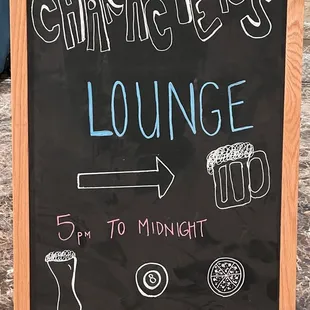 CHARACTERS
LOUNGE
5PM TO MIDNIGHT
8